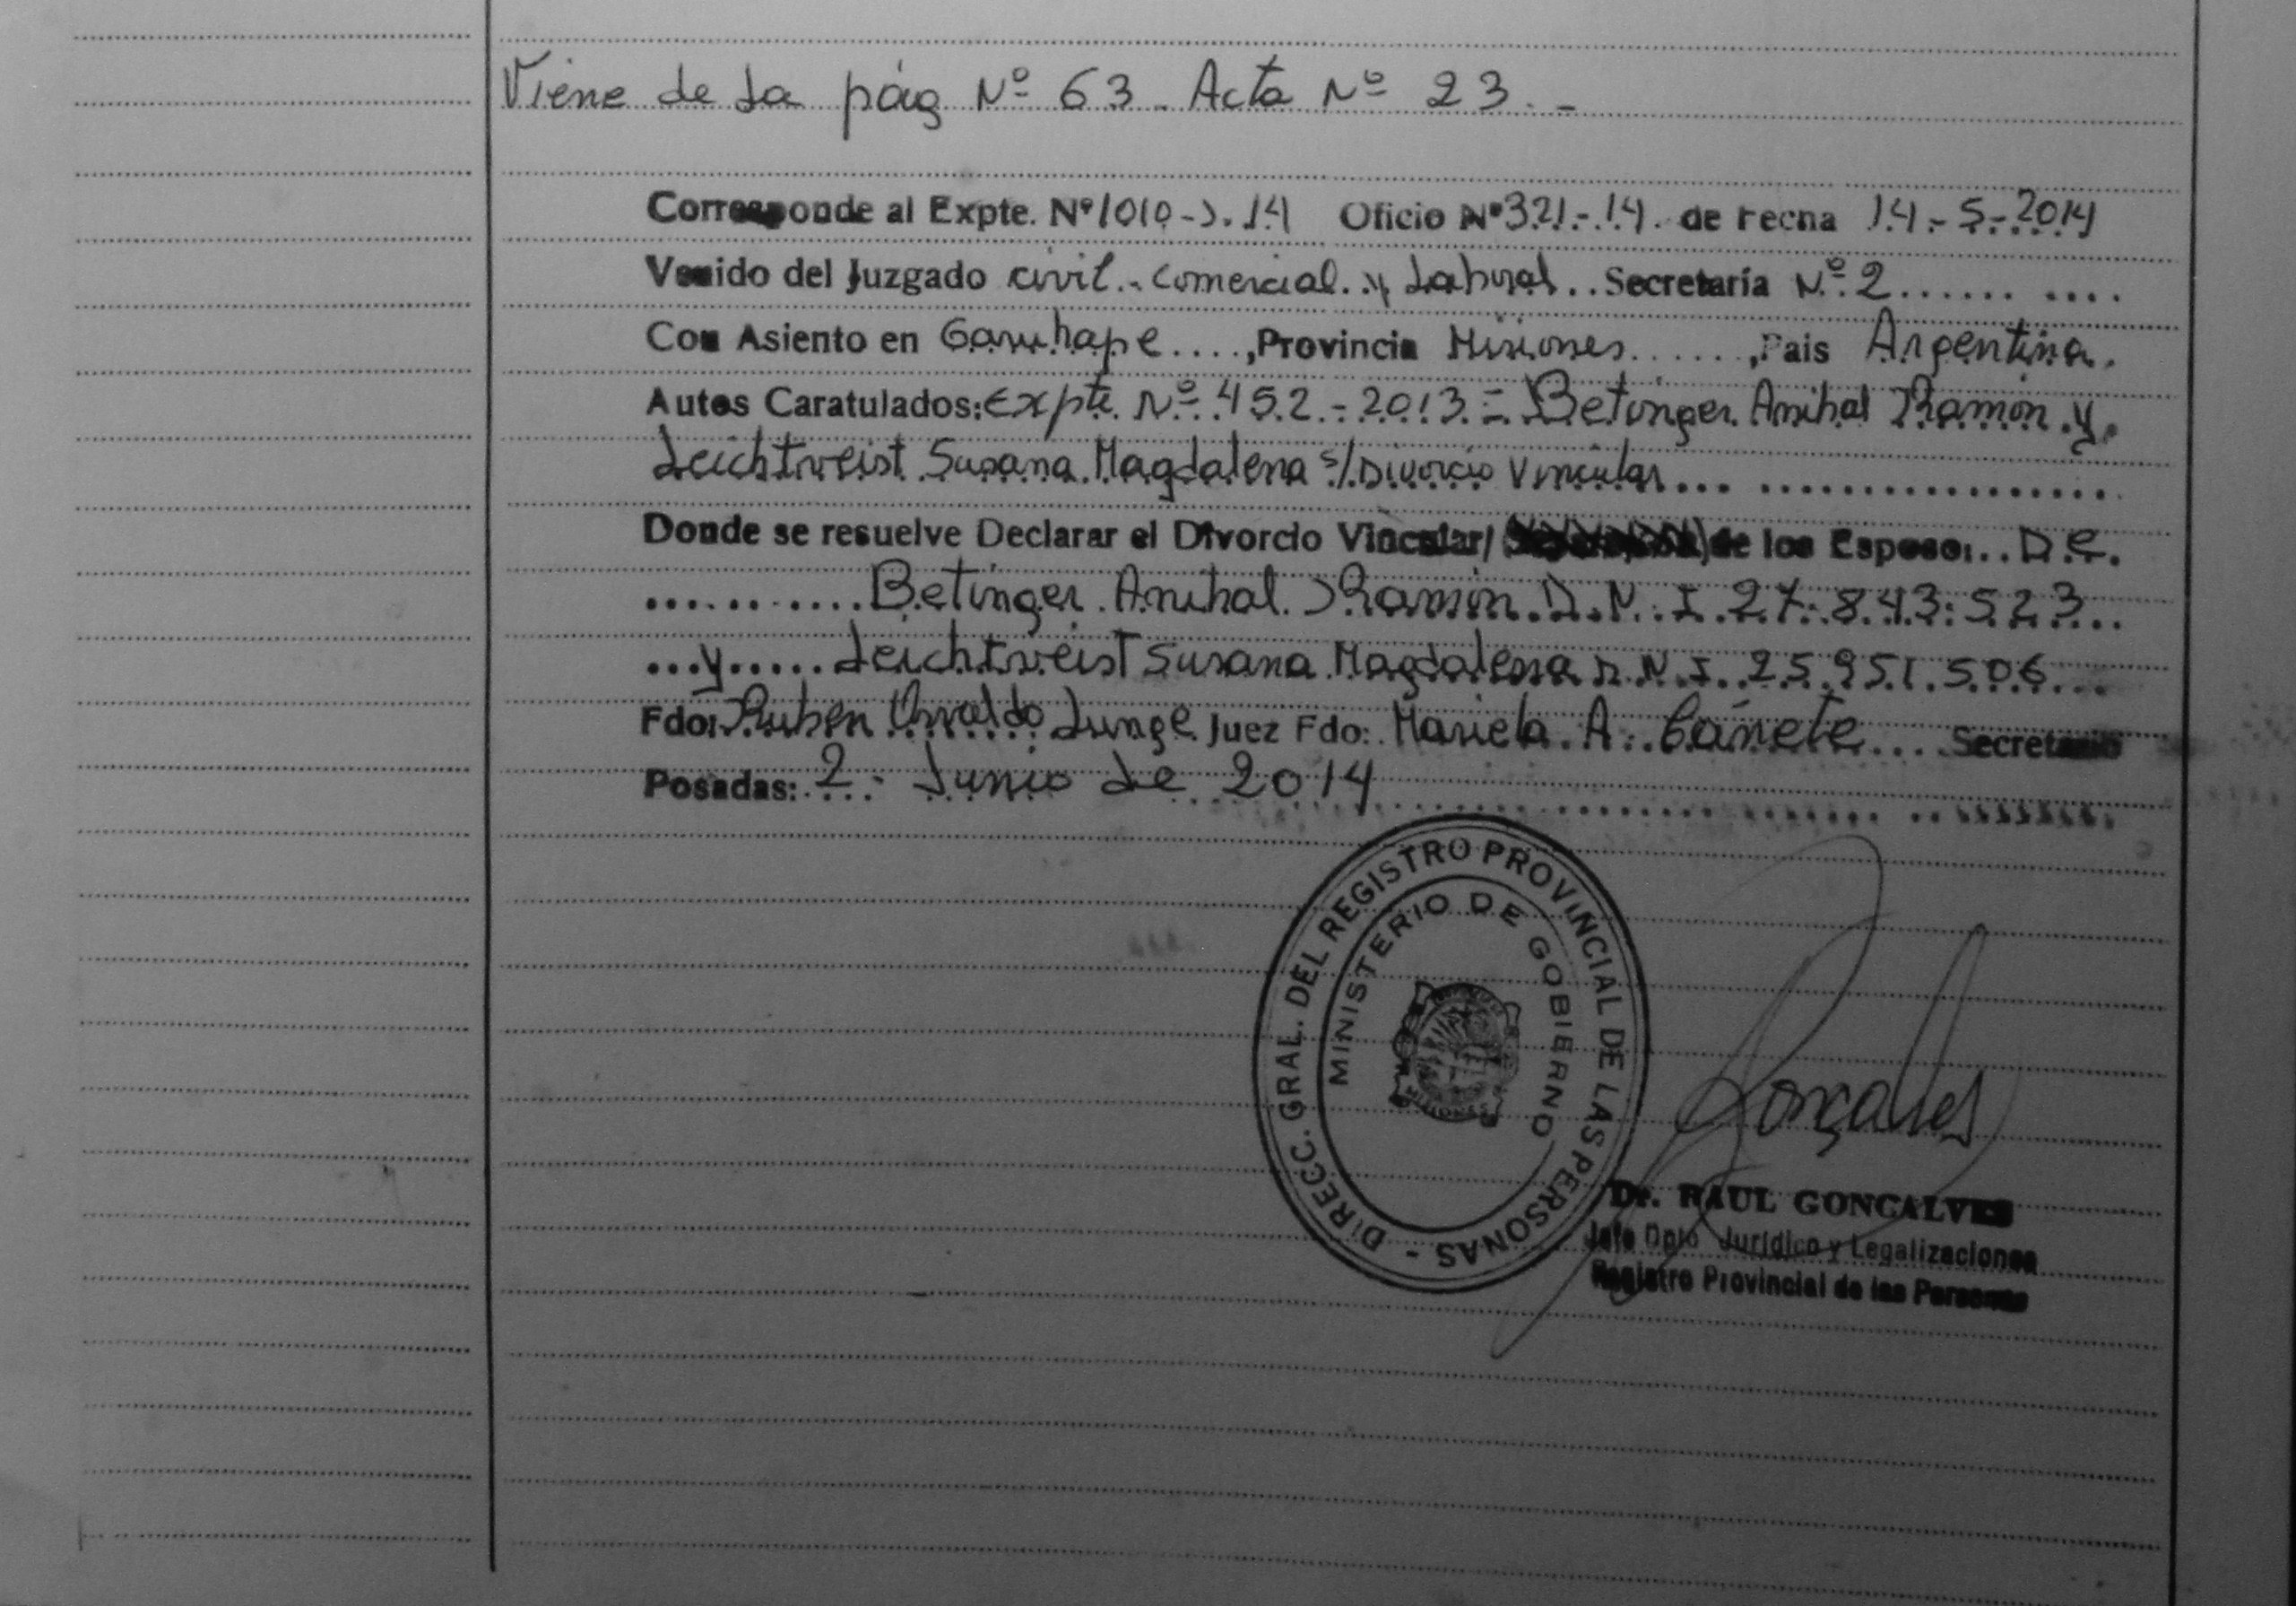 Viene de la pág Nº 63. Acta Nº 23.-
Corresponde al Expte. Nº1010-J.14 Oficio Nº321-14. de Fecha 14-5-2014
Venido del Juzgado civil. Comercial y Laboral..Secretaría Nº 2..........
Con Asiento en Garuhape....,Provincia Misiones......,Pais Argentina.
Autos Caratulados:Expte. Nº 452-2013 = Betinger Anibal Ramon y
Leichtweist Susana Magdalena s/Divorcio Vincular...................
Donde se resuelve Declarar el Divorcio Vincular/ de los Esposo:..De.
...........Betinger Anibal Ramon D.N.I 27.843.523...
...y.....Leichtweist Susana Magdalena D.N.I. 25.951.506...
Fdo:Ruben Osvaldo Lunge Juez Fdo: Mariela A. Cañete... Secretario
Posadas: 2 Junio de 2014
DIRECC. GRAL. DEL REGISTRO PROVINCIAL DE LAS PERSONAS -
MINISTERIO DE GOBIERNO
MISIONES
Gonçalves
Dr. RAUL GONCALVES
Jefe Dpto Jurídico y Legalizaciones
Registro Provincial de las Personas